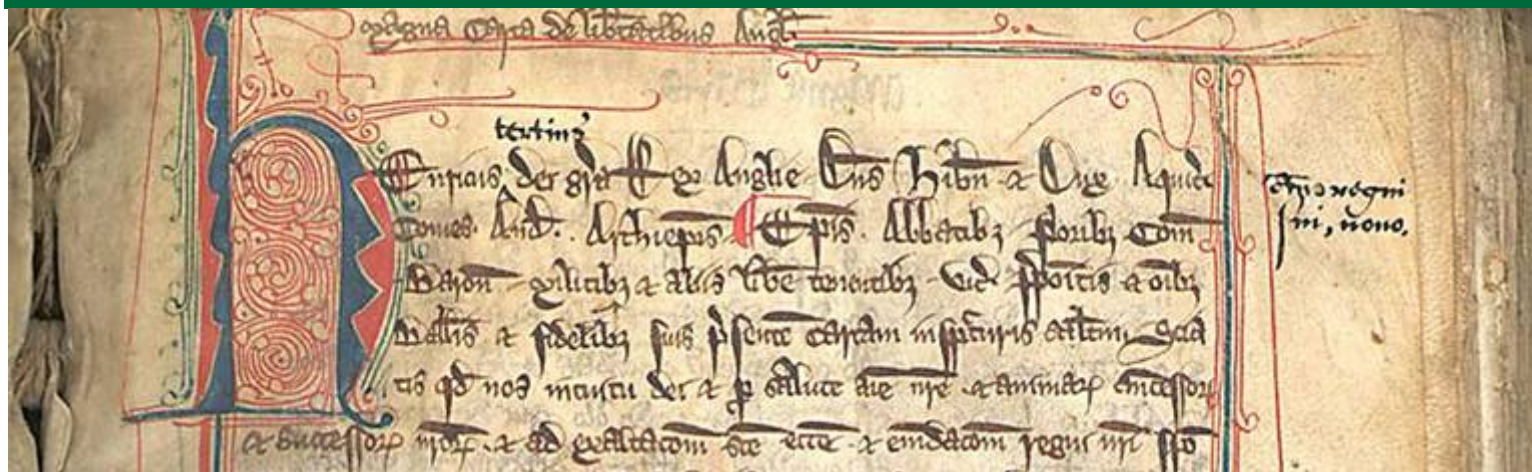 Magna Carta de libertatibus Angl
tertius
Henricus dei gra Rex Anglie Dns Hibn & Dux Aquit
Comes And. Archiepis Epis. Abbatibz Prioribz Com
Baron militibz & aliis libe tenentibz vic ppoitis & oibz
Ballis & fidelibz suis psente cartam inspcturis saltm Scia
tis qd nos intuitu dei & p salute aie nre & animarp antecessorp
& successorp nrorp & ad exaltacom sce ecce & emdacom regni nri spo
regni